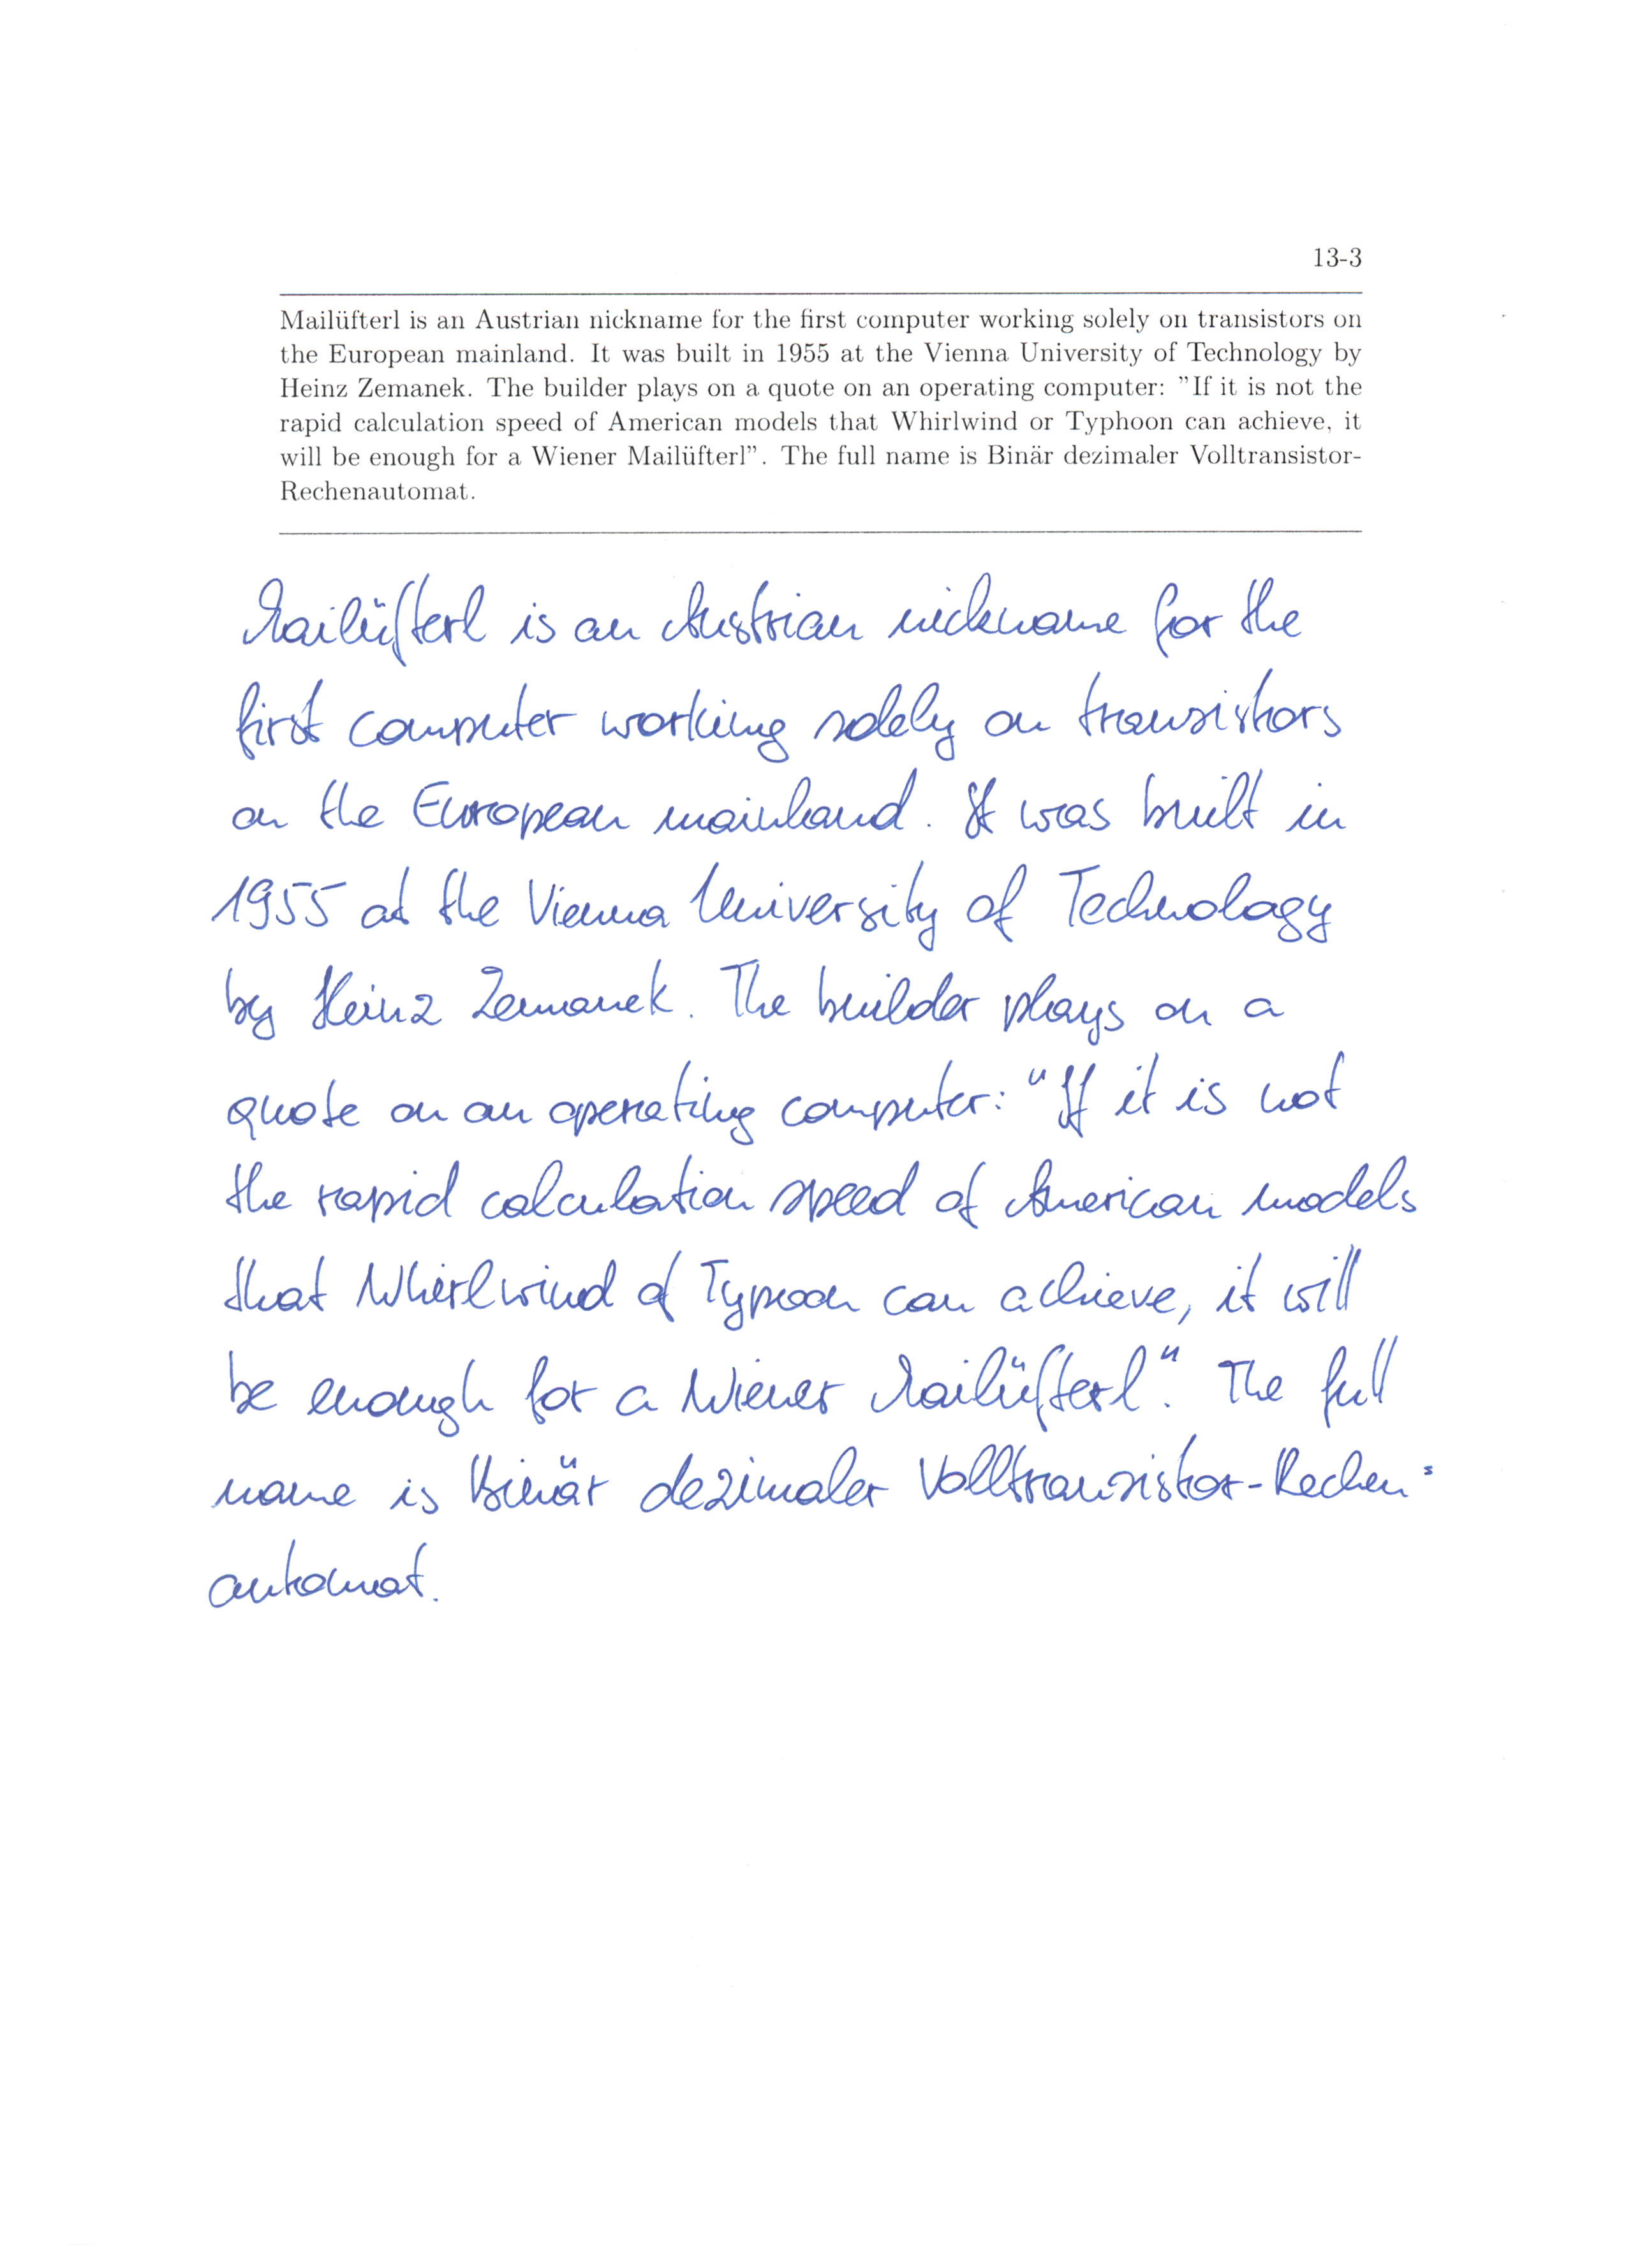 13-3
Mailüfterl is an Austrian nickname for the first computer working solely on transistors on
the European mainland. It was built in 1955 at the Vienna University of Technology by
Heinz Zemanek. The builder plays on a quote on an operating computer: "If it is not the
rapid calculation speed of American models that Whirlwind or Typhoon can achieve, it
will be enough for a Wiener Mailüfterl". The full name is Binär dezimaler Volltransistor-
Rechenautomat.
Mailüfterl is an Austrian nickname for the
first computer working solely on transistors
on the European mainland. It was built in
1955 at the Vienna University of Technology
by Heinz Zemanek. The builder plays on a
quote on an operating computer: "If it is not
the rapid calculation speed of American models
that Whirlwind of Typoon can achieve, it will
be enough for a Wiener Mailüfterl". The full
name is Binär dezimaler Volltransistor-Rechen=
automat.